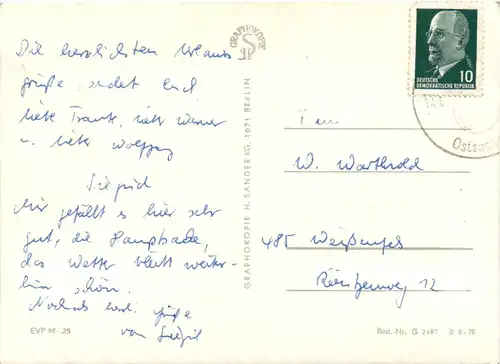 Die herzlichsten Urlaubs
grüße sendet Euch
liebe Traute, lieber Werner
u. lieber Wolfgang
Siegrid
Mir gefällt es hier sehr
gut, die Hauptsache,
das Wetter bleibt weiter-
hin schön.
Nochmals herzl. Grüße
von Siegrid
EVP M -,25
GRAPHOKOPIE
GRAPHOKOPIE H. SANDER KG, 1071 BERLIN
DEUTSCHE
DEMOKRATISCHE REPUBLIK
10
Ostsee
Fam
W. Warthold
485 Weißenfels
12
Best.-Nr. G 2497 B 8/70